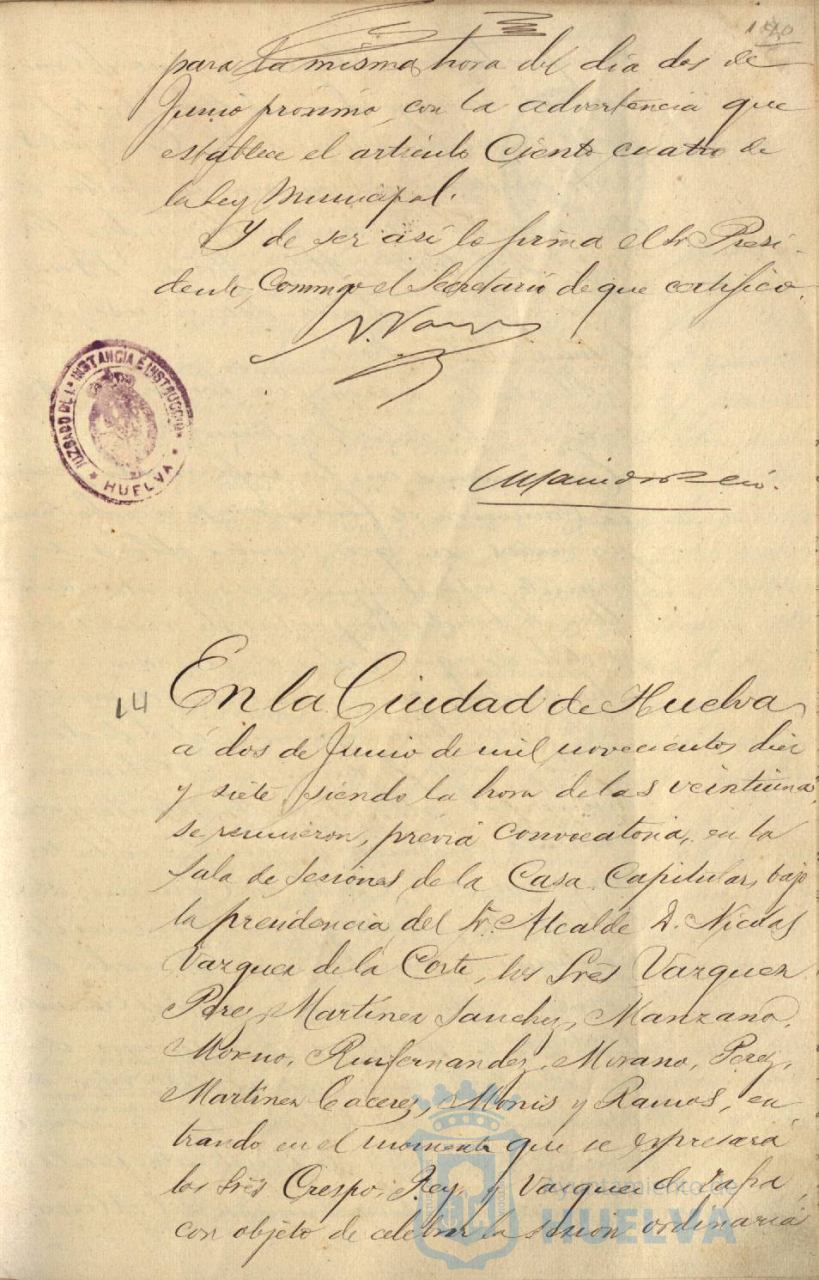 140
para la misma hora del dia dos de
Junio proximo, con la advertencia que
establece el articulo Ciento cuatro de
la ley Municipal.
Y de ser asi lo firma el Sr. Presi-
dente, Conmigo el Secretario de que certifico.
JUZGADO DE 1ª INSTANCIA E INSTRUCCION
* HUELVA *
14 En la Ciudad de Huelva
á dos de Junio de mil novecientos diez
y siete, siendo la hora de las veintiuna
se reunieron, previa convocatoria, en la
Sala de sesiones de la Casa Capitular, bajo
la presidencia del Sr. Alcalde D. Nicolas
Vazquez de la Corte, los Srês Vazquez
Perez, Martinez Sanchez, Manzano,
Moreno, Ruifernandez, Morano, Perez,
Martinez Caceres, Monis y Ramos, en
trando en el momento que se expresará
los Srês Crespo, Rey, y Vazquez de Zafra,
con objeto de celebrar la sesion ordinaria
Ayuntamiento de
HUELVA